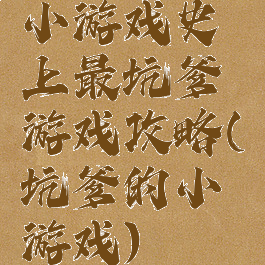 小游戏史
上最坑爹
游戏攻略(
坑爹的小
游戏)